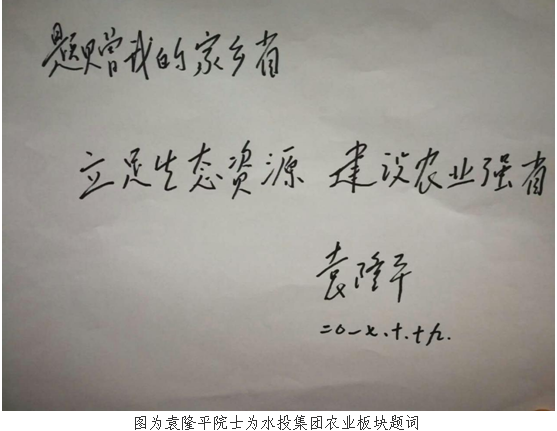 题赠我的家乡省
立足生态资源 建设农业强省
袁隆平
二〇一七.十.十九.
图为袁隆平院士为水投集团农业板块题词